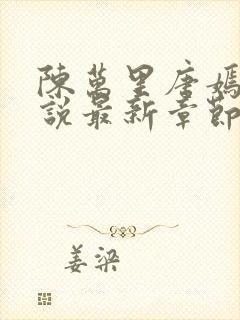 陳萬里唐嫣
說最新章節
姜梁